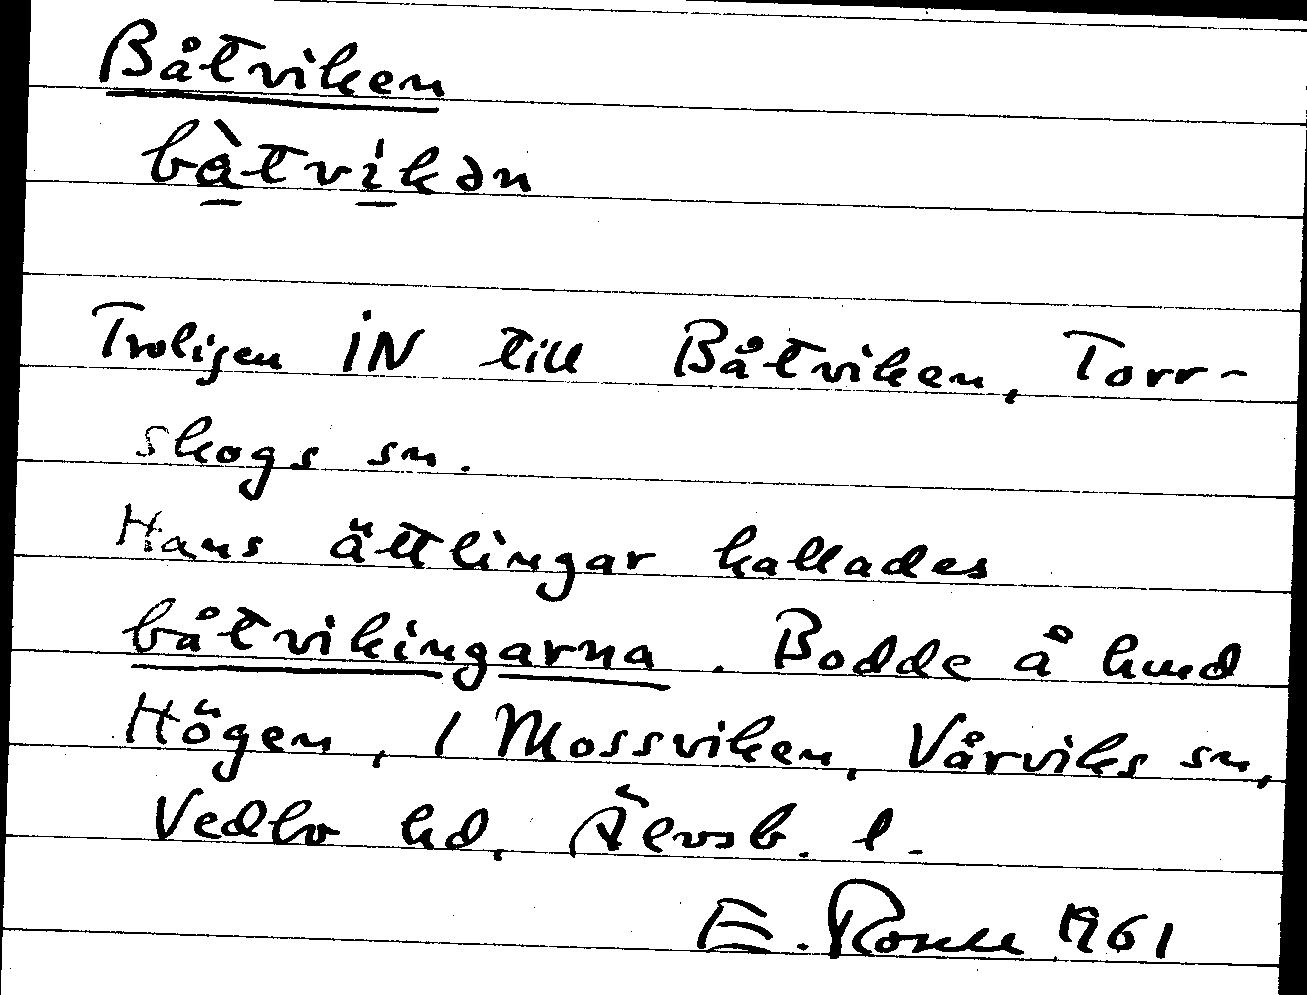 Båtviken
bàtvikən
Troligen IN till Båtviken, Torr-
skogs sn.
Hans ättlingar kallades
båtvikingarna. Bodde å
Högen, 1 Mossviken, Vårviks sn,
Vedbo hd, Älvsb. l.
E. 1961